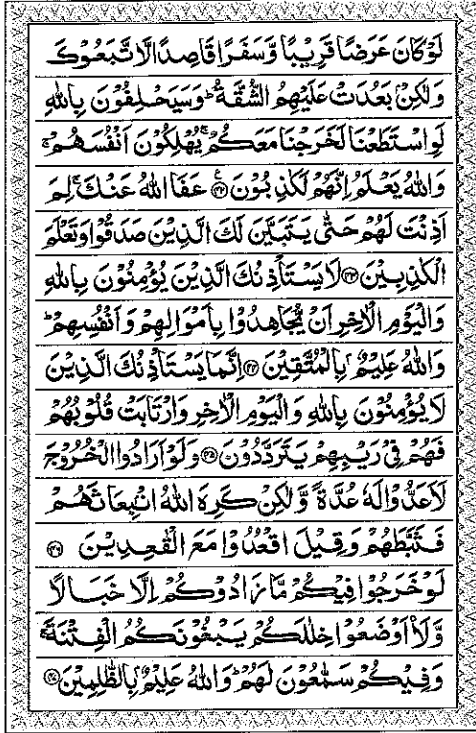 لَوْ كَانَ عَرَضًا قَرِيْبًا وَّسَفَرًا قَاصِدًا لَّاتَّبَعُوْكَ
وَلٰكِنْۢ بَعُدَتْ عَلَيْهِمُ الشُّقَّةُ ؕ وَسَيَحْلِفُوْنَ بِاللّٰهِ
لَوِ اسْتَطَعْنَا لَخَرَجْنَا مَعَكُمْ ۚ يُهْلِكُوْنَ اَنْفُسَهُمْ ۚ
وَاللّٰهُ يَعْلَمُ اِنَّهُمْ لَكٰذِبُوْنَ ۝۴۲ عَفَا اللّٰهُ عَنْكَ ۚ لِمَ
اَذِنْتَ لَهُمْ حَتّٰى يَتَبَيَّنَ لَكَ الَّذِيْنَ صَدَقُوْا وَتَعْلَمَ
الْكٰذِبِيْنَ ۝۴۳ لَا يَسْتَاْذِنُكَ الَّذِيْنَ يُؤْمِنُوْنَ بِاللّٰهِ
وَالْيَوْمِ الْاٰخِرِ اَنْ يُّجَاهِدُوْا بِاَمْوَالِهِمْ وَاَنْفُسِهِمْ ؕ
وَاللّٰهُ عَلِيْمٌۢ بِالْمُتَّقِيْنَ ۝۴۴ اِنَّمَا يَسْتَاْذِنُكَ الَّذِيْنَ
لَا يُؤْمِنُوْنَ بِاللّٰهِ وَالْيَوْمِ الْاٰخِرِ وَارْتَابَتْ قُلُوْبُهُمْ
فَهُمْ فِيْ رَيْبِهِمْ يَتَرَدَّدُوْنَ ۝۴۵ وَلَوْ اَرَادُوا الْخُرُوْجَ
لَاَعَدُّوْا لَهٗ عُدَّةً وَّلٰكِنْ كَرِهَ اللّٰهُ انْۢبِعَاثَهُمْ
فَثَبَّطَهُمْ وَقِيْلَ اقْعُدُوْا مَعَ الْقٰعِدِيْنَ ۝۴۶
لَوْ خَرَجُوْا فِيْكُمْ مَّا زَادُوْكُمْ اِلَّا خَبَالًا
وَّلَا۟اَوْضَعُوْا خِلٰلَكُمْ يَبْغُوْنَكُمُ الْفِتْنَةَ ۚ
وَفِيْكُمْ سَمّٰعُوْنَ لَهُمْ ؕ وَاللّٰهُ عَلِيْمٌۢ بِالظّٰلِمِيْنَ ۝۴۷